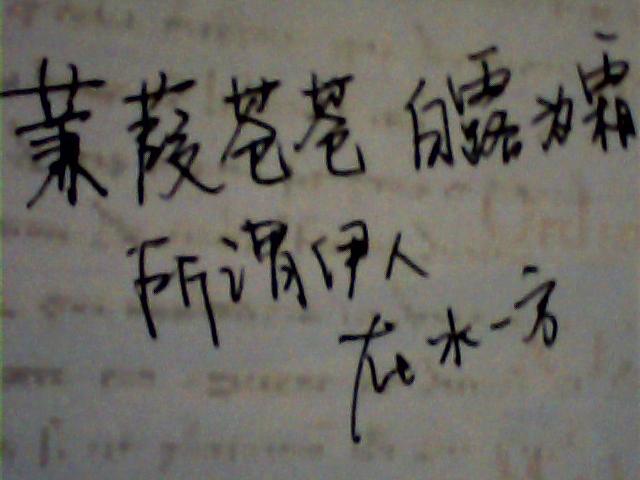 蒹葭苍苍 白露为霜
所谓伊人
在水一方